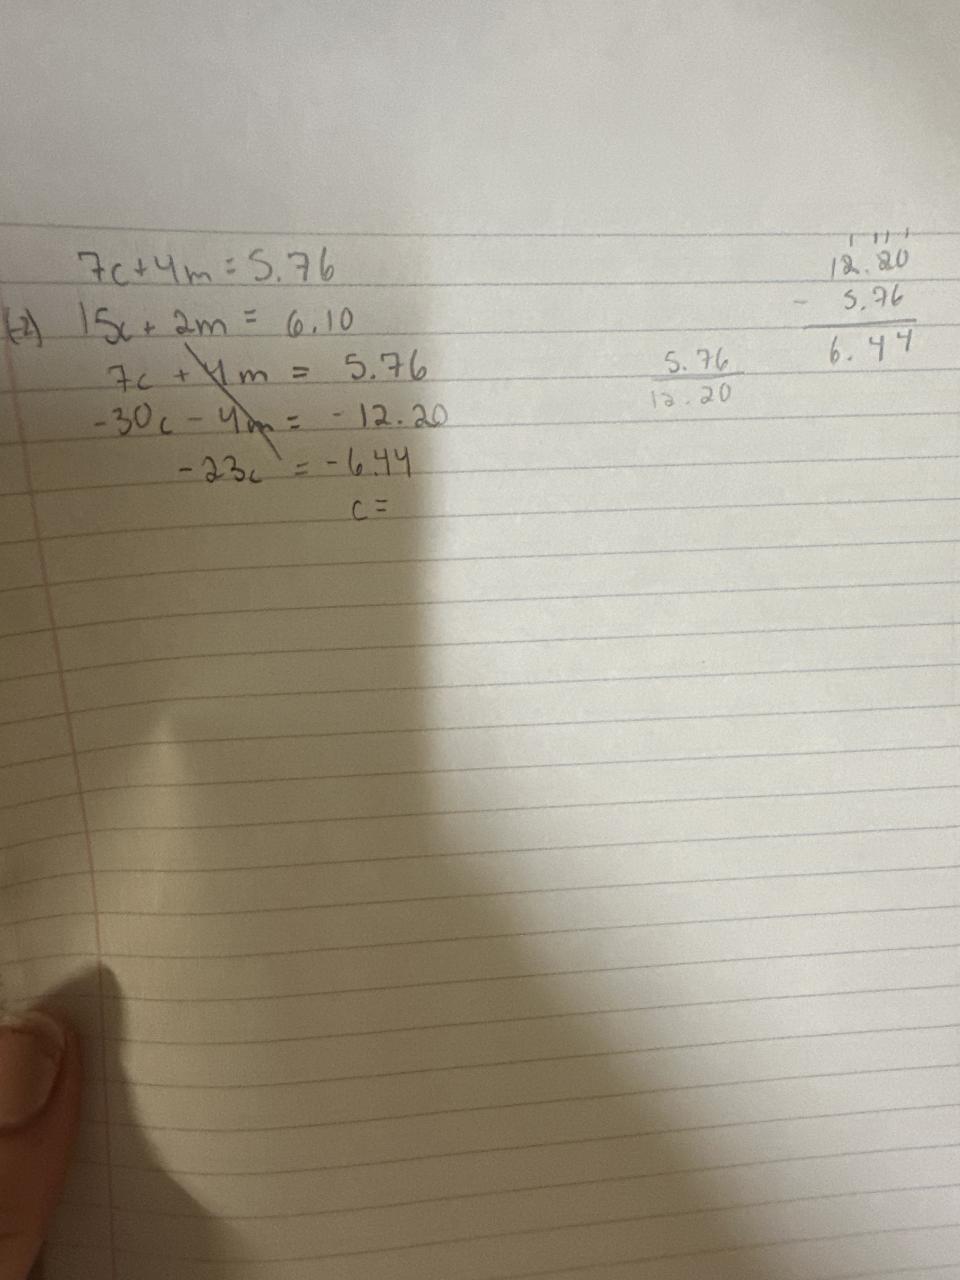 7c+4m = 5.76
(-2) 15c + 2m = 6.10
7c + 4m = 5.76
-30c - 4m = -12.20
-23c = -6.44
c =
12.20
- 5.76
6.44
5.76
12.20